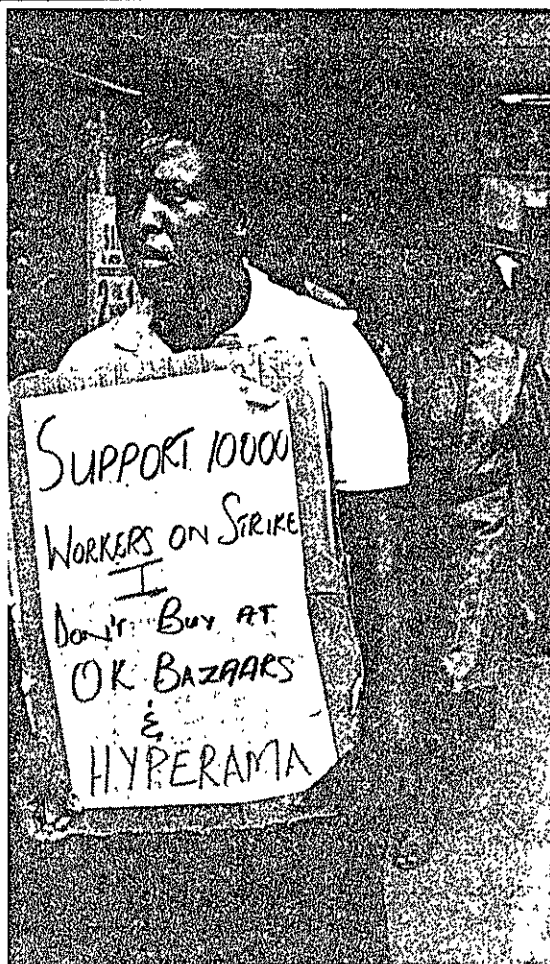 SUPPORT 10000
WORKERS ON STRIKE
I
DON'T BUY AT
OK BAZAARS
&
HYPERAMA